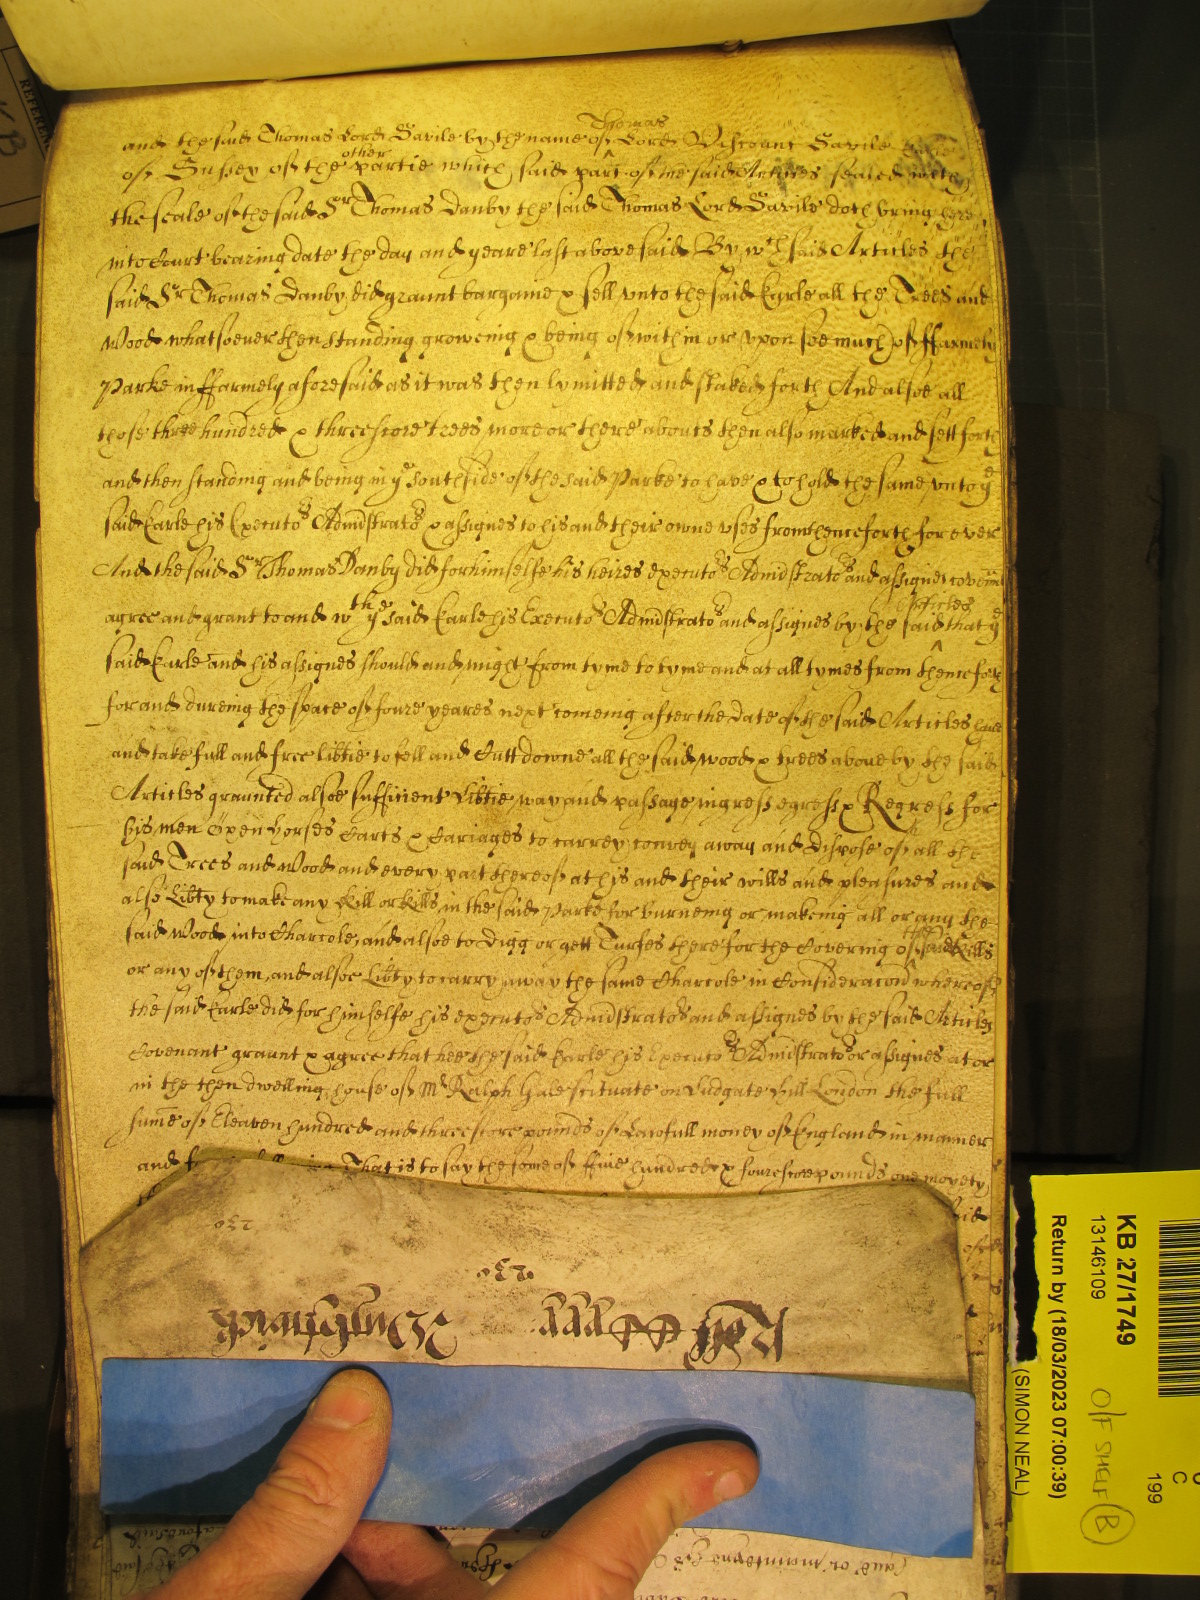 and the said Thomas Lord Savile by the name of Thomas Lord Viscount Savile
of Sussex of the other partie which said part of the said Articles sealed with
the seale of the said Sr Thomas Danby the said Thomas Lord Savile doth bring here
into Court bearing date the day and yeare last abovesaid By wch said Articles the
said Sr Thomas Danby did graunt bargaine & sell vnto the said Earle all the Trees and
Wood whatsoever then standing groweing & being of within or vpon soe much of ffarmely
Parke in ffarmely aforesaid as it was then lymitted and staked forth And alsoe all
those three hundred & threescore trees more or there abouts then also marked and sett forth
and then standing and being in ye southside of the said Parke to have & to hold the same vnto ye
said Earle his Executos Admistratos & assignes to his and their owne vses from thenceforth for ever
And the said Sr Thomas Danby did for himselfe his heires executos Admistratos and assignes
agree and grant to and wth ye the said Earle his Executos Admistratos and assignes by the said Articles that ye
said Earle and his assignes should and might from tyme to tyme and at all tymes from thenceforth
for and dureing the space of foure yeares next comeing after the date of the said Articles have
and take full and free libtie to fell and Cutt downe all the said wood & trees above by the said
Articles graunted alsoe sufficient Libtie way and passage ingress egress & Regress for
his men Oxen horses Carts & Cariages to carrey convey away and dispose of all the
said Trees and Wood and every part thereof at his and their wills and pleasures and
also Libty to make any Kill or Kills in the said Parke for burneing or makeing all or any the
said Wood into Charcole, and alsoe to Digg or gett Turfes there for the Covering of the said Kills
or any of them, and alsoe Libty to carry away the same Charcole in Consideracon whereof
the said Earle did for himselfe his executos Admistratos and assignes by the said Articles
Covenant graunt & agree that hee the said Earle his Executos Admistrato or assignes at or
in the then dwelling house of Mr Ralph Hale scituate on Ludgate Hill London the full
sume of Eleaven hundred and threescore pounds of Lawfull money of England in manner
and That is to say the some of ffive hundred & fourescore pounds one moyety
said
230
230
Roll
REFEREN
KB
KB 27/1749
13146109
Return by (18/03/2023 07:00:39)
(SIMON NEAL)
O/F SHELF B
C
199